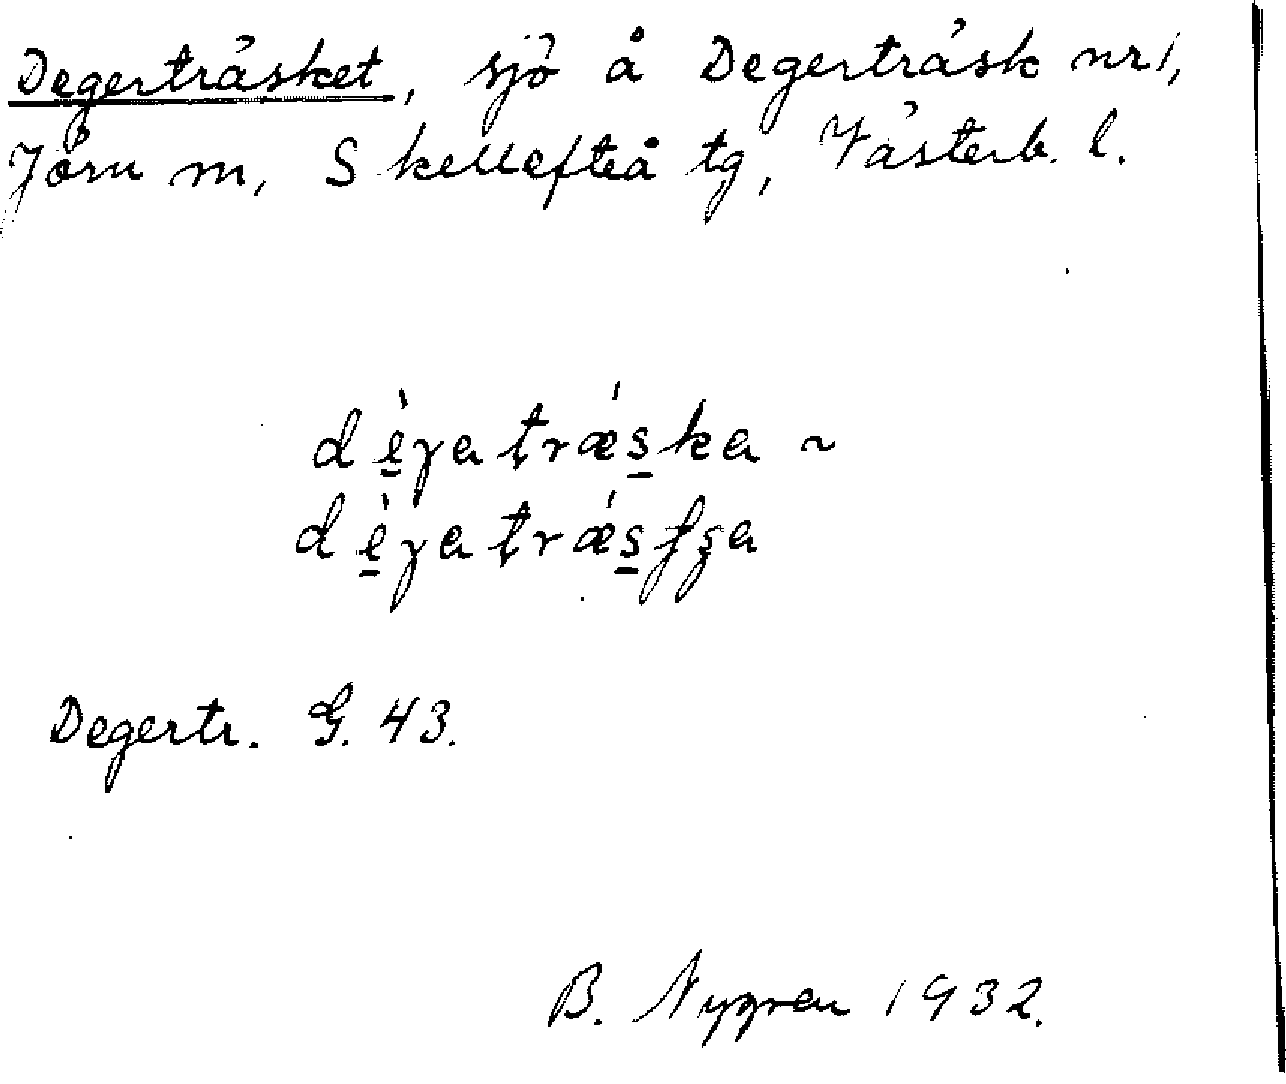 Degerträsket, sjö å Degerträsk nr 1,
Jörn sn, Skellefteå tg, Västerb. l.
dèγatræ´ska ~
dèγatræ´sʄʂa
Degertr. G. 43.
B. Nygren 1932.